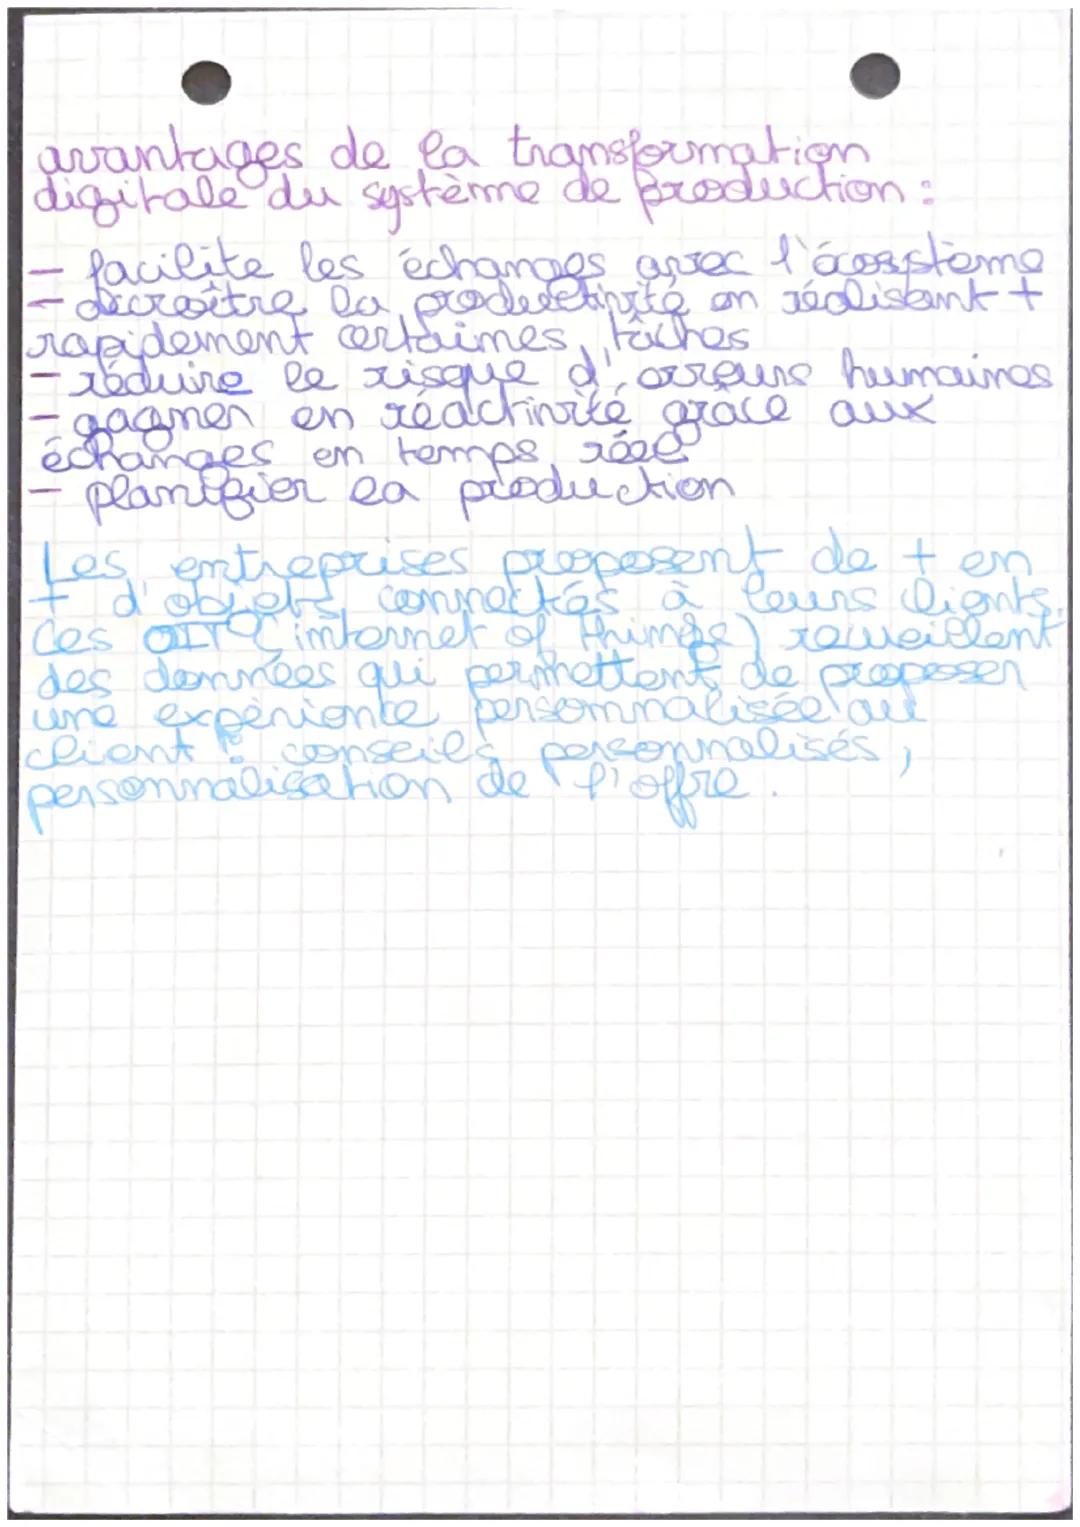 avantages de la transformation
digitale du système de production :
- facilite les échanges avec l'écosystème
- décroître la productivité en réalisant +
rapidement certaines tâches
- réduire le risque d'erreurs humaines
- gagner en réactivité grâce aux
échanges en temps réel
- planifier la production
Les entreprises proposent de + en
+ d'objets connectés à leurs clients.
Ces OIT (internet of things) recueillent
des données qui permettent de proposer
une expérience personnalisée au
client : conseils personnalisés,
personnalisation de l'offre.